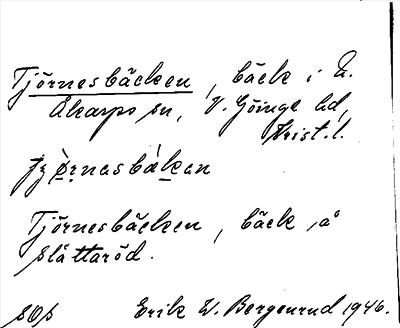 Tjörnesbäcken, bäck i N.
Åkarps sn, V. Göinge hd,
Krist.l.
Tjörnesbäcken, bäck å
Slättaröd.
SOS Erik W. Bergenrud 1946.